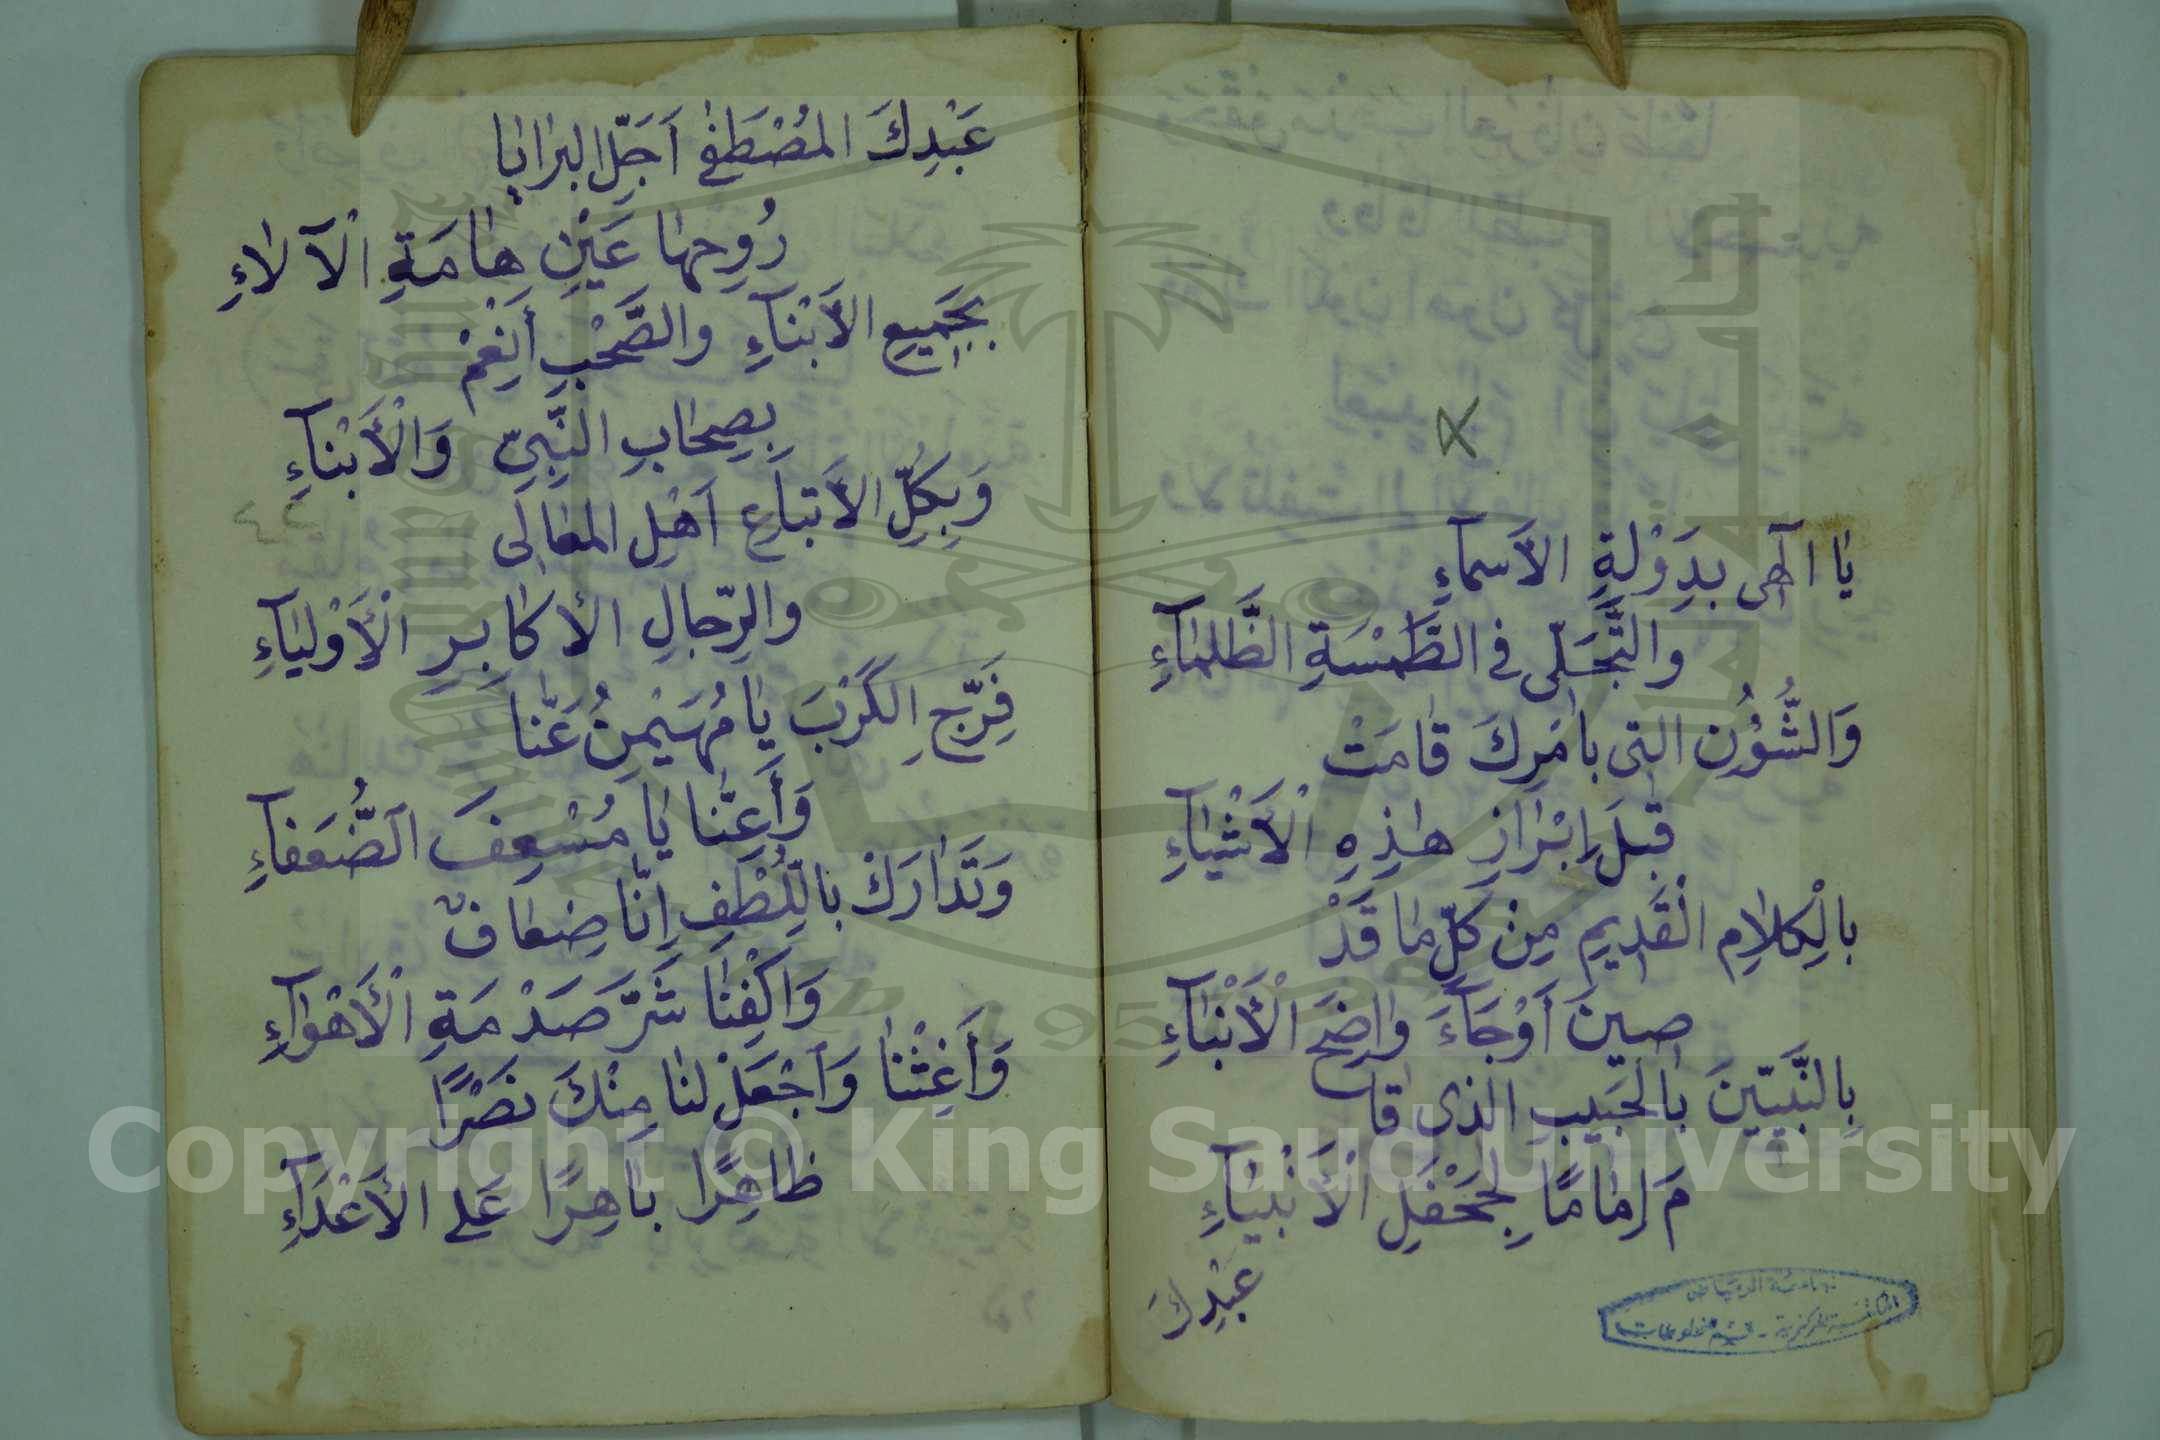 يَا آلٰهى بِدَوْلَةِ الأَسمآءِ
والتَّجَلّى فى الطَّمْسَةِ الظَّلمآءِ
وَالشُّوُنِ التى بأمرِكَ قَامَتْ
قبلَ اِبْرَازِ هٰذِهِ الْأَشْيَآءِ
بالْكِلَامِ الْقَدِيمِ مِنْ كلِّ مَا قَدْ
صِينَ أَوْجَآءَ وَاضِحَ الْأَنْبَآءِ
بِالنَّبِيّينَ بالحَبيبِ الذى قا
مَ اِمَامًا لِجَحْفَلِ الْأَنْبِيَآءِ
عَبْدِكَ
عَبْدِكَ المُصْطَفٰى اَجَلِّ البرَايَا
رُوحِهَا عَيْنِ هَامَةِ الْآلاءِ
بجَمِيعِ الأَبْنَآءِ والصَّحْبِ أَنْعِمْ
بِصِحَابِ النَّبِىِّ وَالْأَبْنَآءِ
وَبِكُلِّ الأَتباعِ اَهْلِ المعَالى
والرِّجالِ الأكَابِرِ الْأَوْليَآءِ
فَرِّجِ الكَرْبَ يَا مُهَيْمِنُ عَنّا
وَأَعِنَّا يَا مُسْعِفَ الضُّعَفآءِ
وَتَدَارَكْ باللُّطْفِ اِنَّا ضِعَافٌ
وَاكْفِنَا شَرَّ صَدْمَةِ الْأَهْوَآءِ
وَأَغِثْنَا وَاجْعَلْ لنَا مِنْكَ نَصْرًا
ظاهِرًا بَاهِرًا عَلى الأَعْدَآءِ
جامعة الرياض
المكتبة المركزية - قسم المخطوطات
Copyright © King Saud University